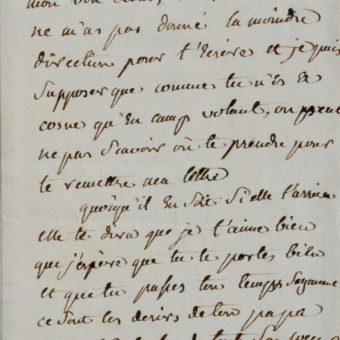 mon bon
ne m'as pas donné la moindre
direction pour t'Ecrire et je puis
supposer que comme tu n'és En
qu'En camp volant, on peut
ne pas Sçavoir où te prendre pour
te remettre ma lettre
quoiqu'il En Soit Si elle t'arrive
elle te dira que je t'aime bien
que j'espère que tu te portes bien
et que tu passes ton temps
ce sont les désirs de ton papa